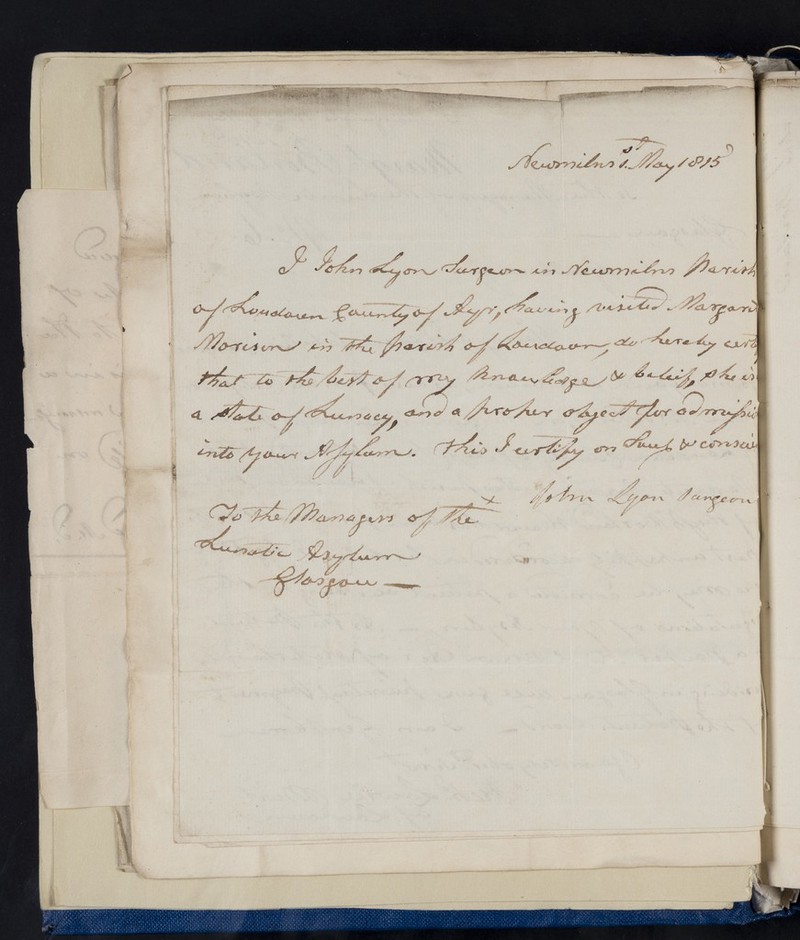 Newmilns 1st May 1815
I John Lyon Surgeon in Newmilns Parish
of Loudoun County of Ayr, having visited Margaret
Morison in the parish of Loudoun, do hereby cert
that to the best of my knowledge & beleif, she is
a state of Lunacy, and a proper object for admissi
into your Asylum. this I certify on Saul & conscie
John Lyon Surgeon
To the Managers of the
Lunatic Asylum
Glasgow —